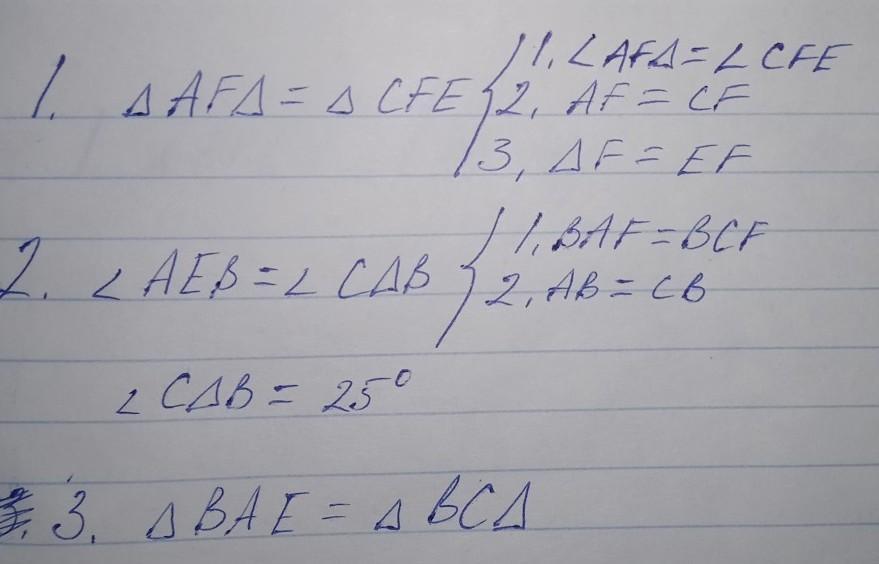 1. Δ AFΔ = Δ CFE { 1. ∠ AFΔ = ∠ CFE
2, AF = CF
3, ΔF = EF
2. ∠ AEB = ∠ CΔB { 1. BAF = BCF
2, AB = CB
∠ CΔB = 25°
3. Δ BAE = Δ BCΔ